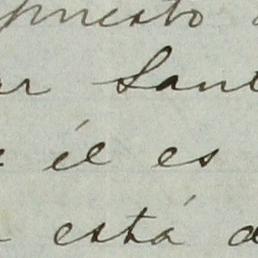 puesto
Sant
él es
está a